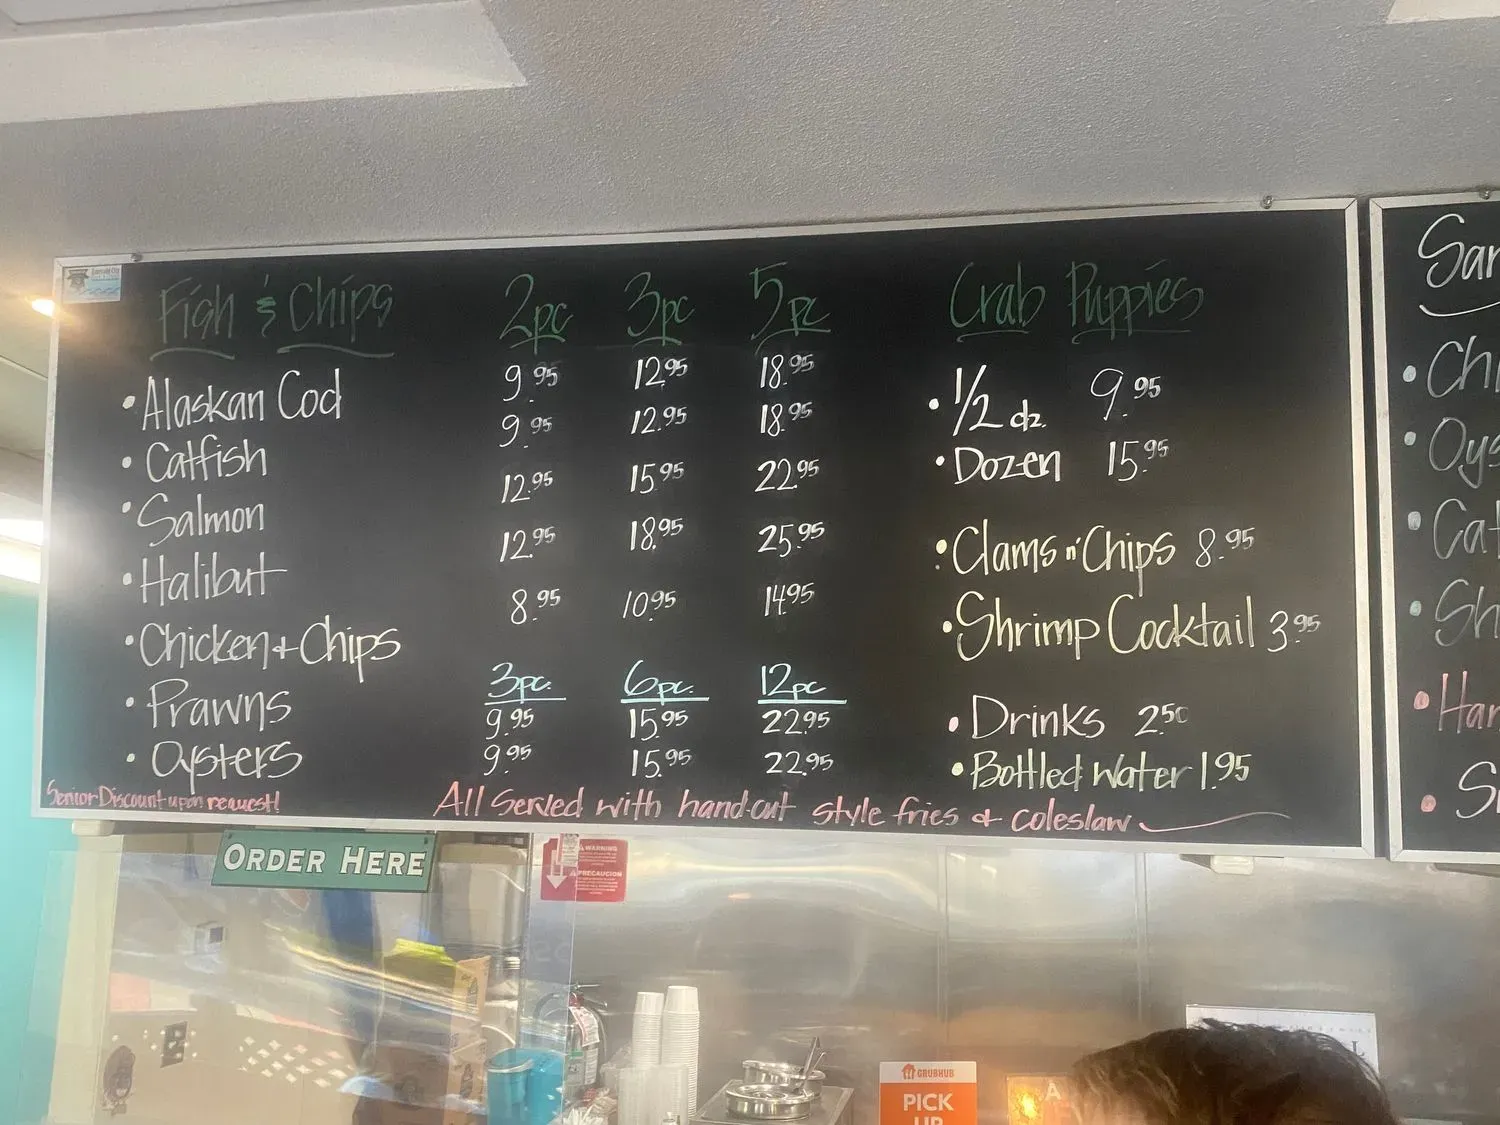 Fish & Chips 2pc 3pc 5pc
• Alaskan Cod 9.95 12.95 18.95
• Catfish 9.95 12.95 18.95
• Salmon 12.95 15.95 22.95
• Halibut 12.95 18.95 25.95
• Chicken + Chips 8.95 10.95 14.95
3pc. 6pc. 12pc
• Prawns 9.95 15.95 22.95
• Oysters 9.95 15.95 22.95
Senior Discount upon request!
All Served with hand-cut style fries & coleslaw
Crab Puppies
• 1/2 dz. 9.95
• Dozen 15.95
• Clams n' Chips 8.95
• Shrimp Cocktail 3.95
• Drinks 2.50
• Bottled Water 1.95
ORDER HERE
WARNING
PRECAUCION
GRUBHUB
PICK
UP